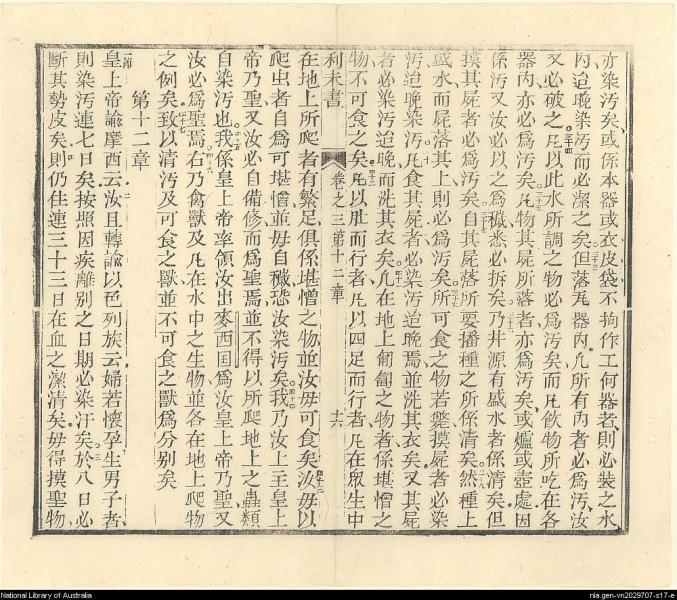 亦染污矣或係本器或衣皮袋不拘作工何器者則必裝之水
內迨晚染污而必潔之矣但落瓦器內凡所有內者必爲污汝
又必破之凡以此水所調之物必爲污矣而凡飲物所吃在各
器內亦必爲污矣凡物其屍所落者亦爲污矣或爐或壼處因
係污又汝必以之爲穢悉必拆矣乃井源有盛水者係清矣但
摸其屍者必爲污矣自其屍落所要播種之所係清矣然種上
盛水而屍落其上則必爲污矣所可食之物若斃摸屍者必染
污迨晚染污凡食其屍者必染污迨晚焉並洗其衣矣又其屍
者必染污迨晚而洗其衣矣凡在地上匍匐之物者係堪憎之
物不可食之矣凡以肚而行者凡以四足而行者凡在眾生中
利未書 卷之三第十二章 十六
在地上所爬者有繁足俱係堪憎之物並汝毋可食矣汝毋以
爬虫者自爲可堪憎並毋自穢恐汝染污矣我乃汝上主皇上
帝乃聖又汝必自備修而爲聖焉並不得以所爬地上之蟲類
自染污也我係皇上帝率領汝出麥西囯爲汝皇上帝乃聖又
汝必爲聖焉右乃禽獸及凡在水中之生物並各在地上爬物
之例矣致以清污及可食之獸並不可食之獸爲分別矣
第十二章
皇上帝諭摩西云汝且轉諭以色列族云婦若懷孕生男子者
則染污連七日矣按照因疾離別之日期必染汙矣於八日必
斷其勢皮矣則仍住連三十三日在血之潔清矣毋得摸聖物
National Library of Australia
nla.gen-vn2029707-s17-e